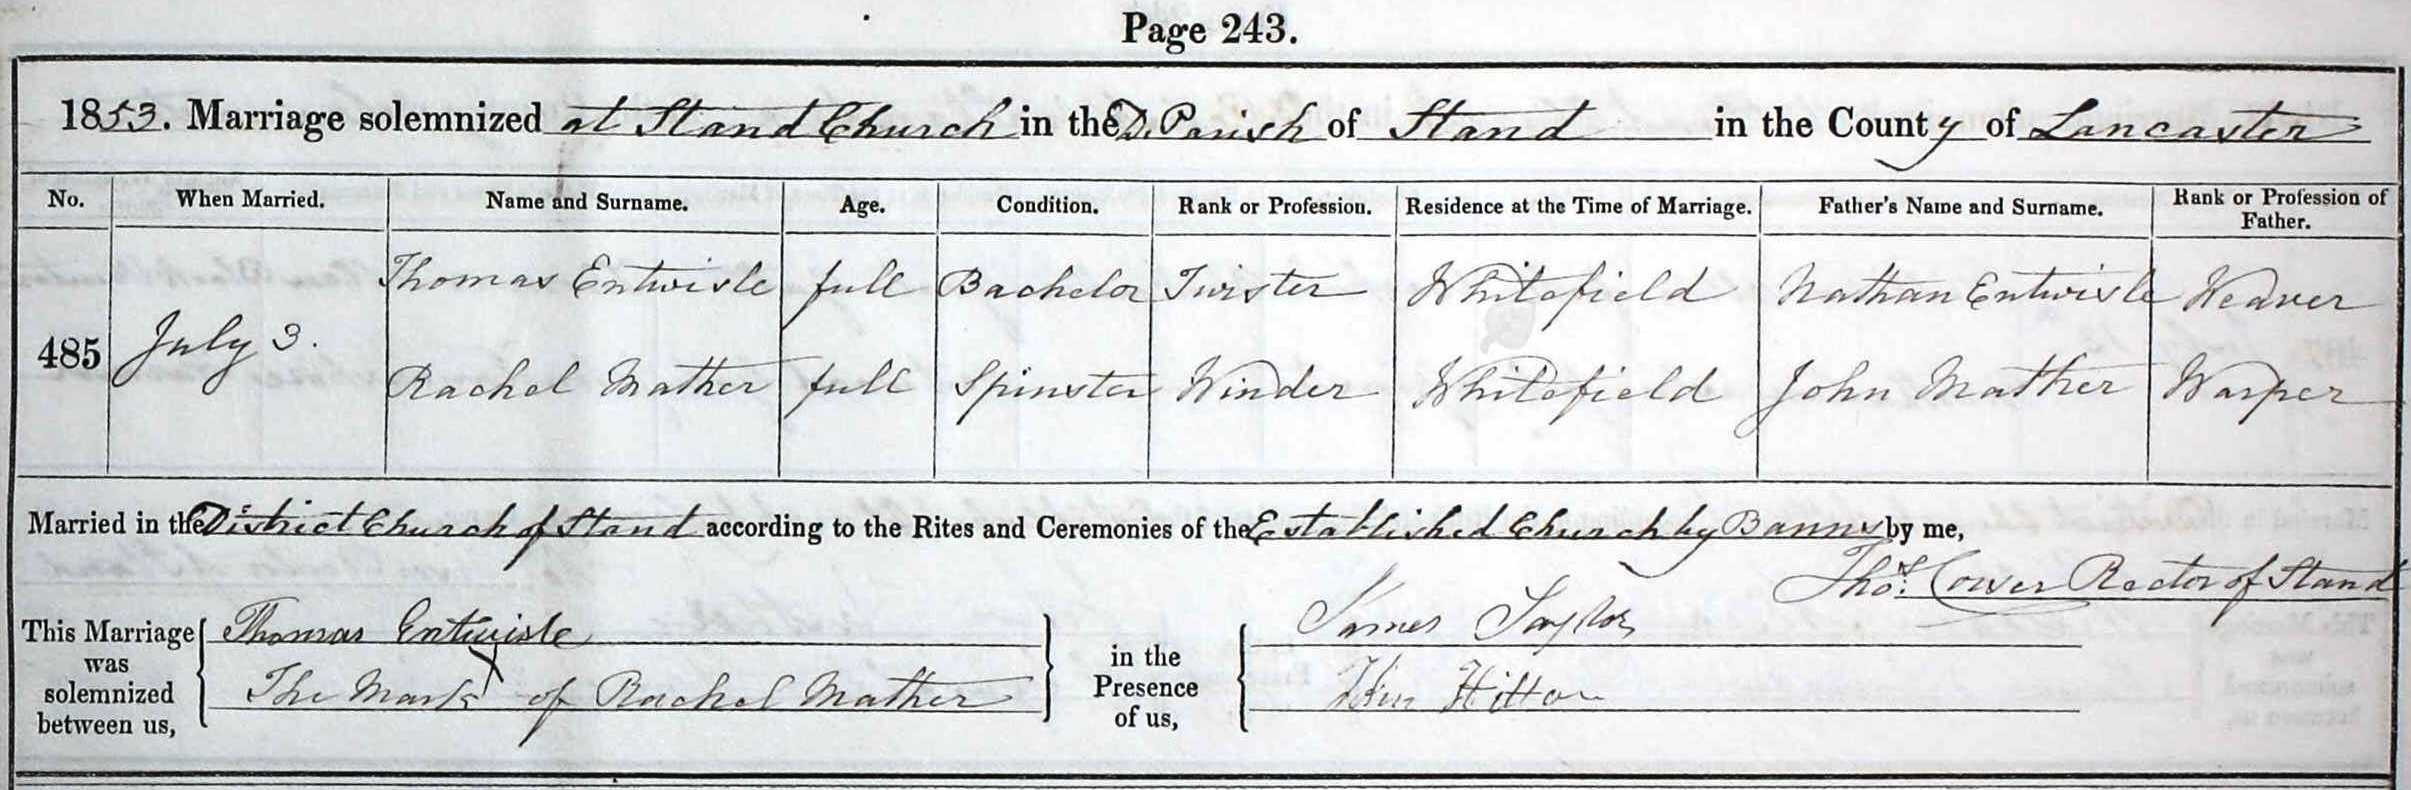 Page 243.
1853. Marriage solemnized at Stand Church in the D. Parish of Stand in the County of Lancaster
No. When Married. Name and Surname. Age. Condition. Rank or Profession. Residence at the Time of Marriage. Father's Name and Surname. Rank or Profession of Father.
485 July 3. Thomas Entwisle full Bachelor Twister Whitefield Nathan Entwisle Weaver
Rachel Mather full Spinster Winder Whitefield John Mather Warper
Married in the District Church of Stand according to the Rites and Ceremonies of the Established Church by Banns by me,
Thos. Rector of Stand
This Marriage was solemnized between us, Thomas Entwisle in the Presence of us, James Taylor
The Mark X of Rachel Mather John Hilton